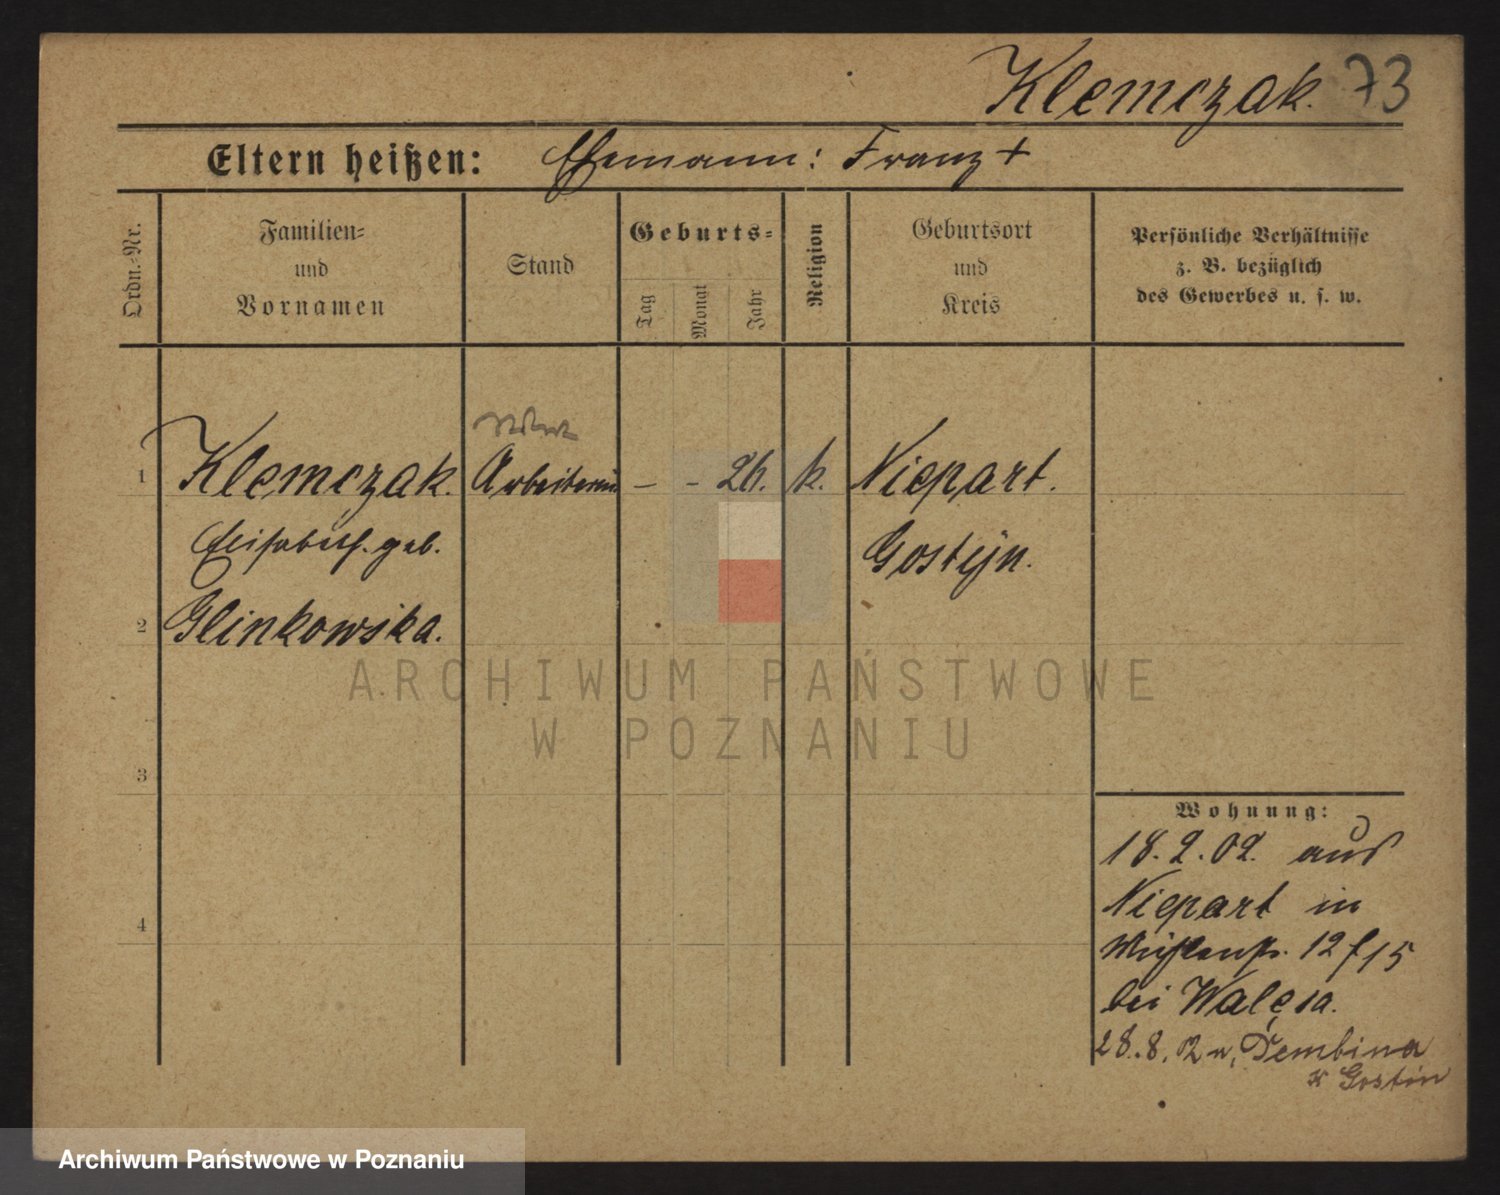 Klemczak. 73
Eltern heißen: Ehemann: Franz +
Ordn.-Nr.
Familien-
und
Vornamen
Stand
Geburts-
Tag
Monat
Jahr
Religion
Geburtsort
und
Kreis
Persönliche Verhältnisse
z. B. bezüglich
des Gewerbes u. s. w.
1 Klemczak. Arbeiterin — - 26. k. Niepart.
Elisabeth. geb. Gostyn.
2 Glinkowska.
3
4
Wohnung:
18.2.02. aus
Niepart in
12/15
bei Walęsa.
28.8. Dembina
Gostin
ARCHIWUM PAŃSTWOWE
W POZNANIU
Archiwum Państwowe w Poznaniu